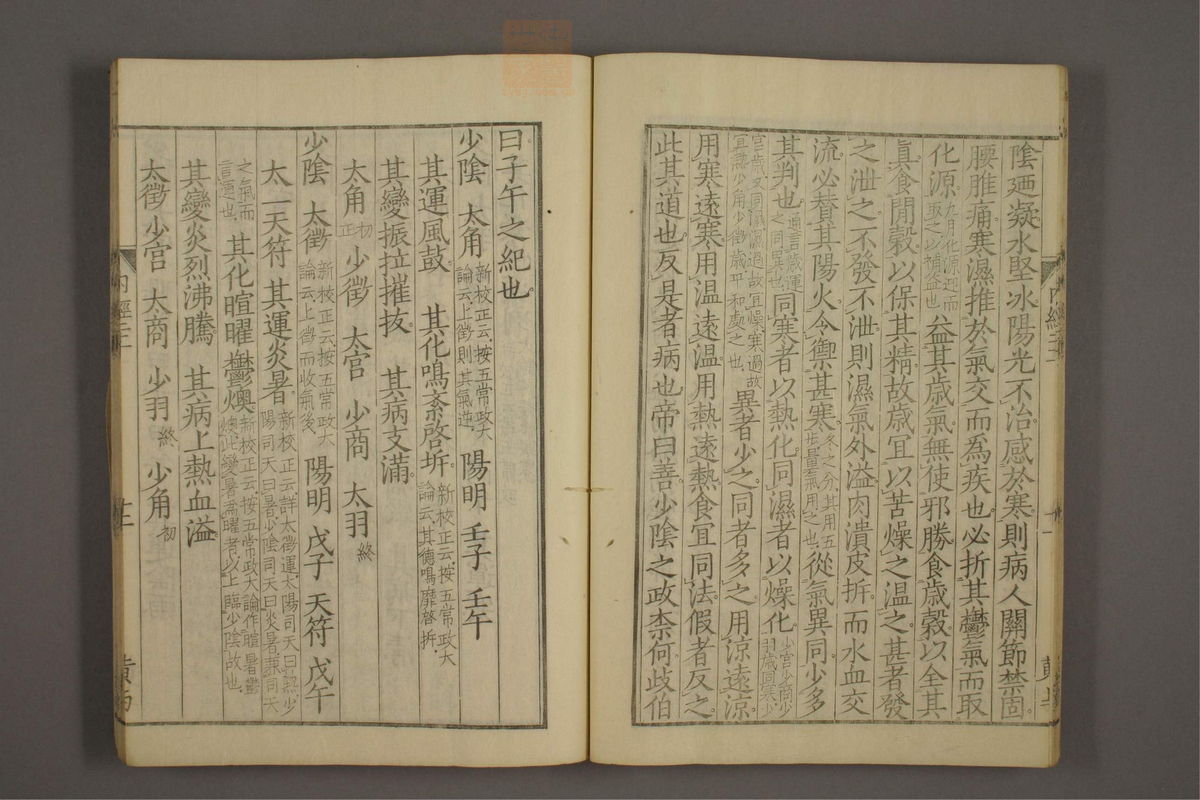 陰廼凝水堅冰陽光不治感於寒則病人關節禁固
腰脽痛寒濕推於氣交而爲疾也必折其鬱氣而取
化源九月化源迎而取之以補益也益其歲氣無使邪勝食歲穀以全其
眞食間穀以保其精故歲宜以苦燥之温之甚者發
之泄之不發不泄則濕氣外溢肉潰皮拆而水血交
流必賛其陽火令禦甚寒冬之分其用五步量氣用之也從氣異同少多
其判也通言歲運之同異也同寒者以熱化同濕者以燥化少宮少商少羽歲同寒少
宮歲又同濕濕過故宜燥寒過故宜熱少角少徵歲平和處之也異者少之同者多之用涼遠涼
用寒遠寒用温遠温用熱遠熱食宜同法假者反之
此其道也反是者病也帝曰善少陰之政柰何歧伯
曰子午之紀也
少陰 太角新校正云按五常政大論云上徵則其氣逆 陽明 壬子 壬午
其運風鼓 其化鳴紊啓坼新校正云按五常政大論云其德鳴靡啓拆
其變振拉摧拔 其病支滿
太角初正 少徵 太宮 少商 太羽終
少陰 太徵新校正云按五常政大論云上徵而收氣後 陽明 戊子 天符 戊午
太一天符 其運炎暑新校正云詳太徵運太陽司天曰熱少陽司天曰暑少陰司天曰炎暑兼司天
之氣而言運也 其化暄曜鬱燠新校正云按五常政大論作暄暑鬱燠此變暑爲曜者以上臨少陰故也
其變炎烈沸騰 其病上熱血溢
太徵 少宮 太商 少羽終 少角初
内經十二
十二